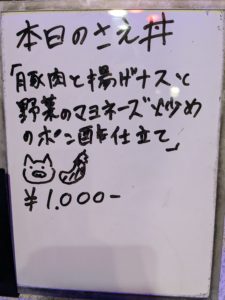 本日のさえ丼
「豚肉と揚げナスと
野菜のマヨネーズ炒め
のポン酢仕立て」
¥1.000-